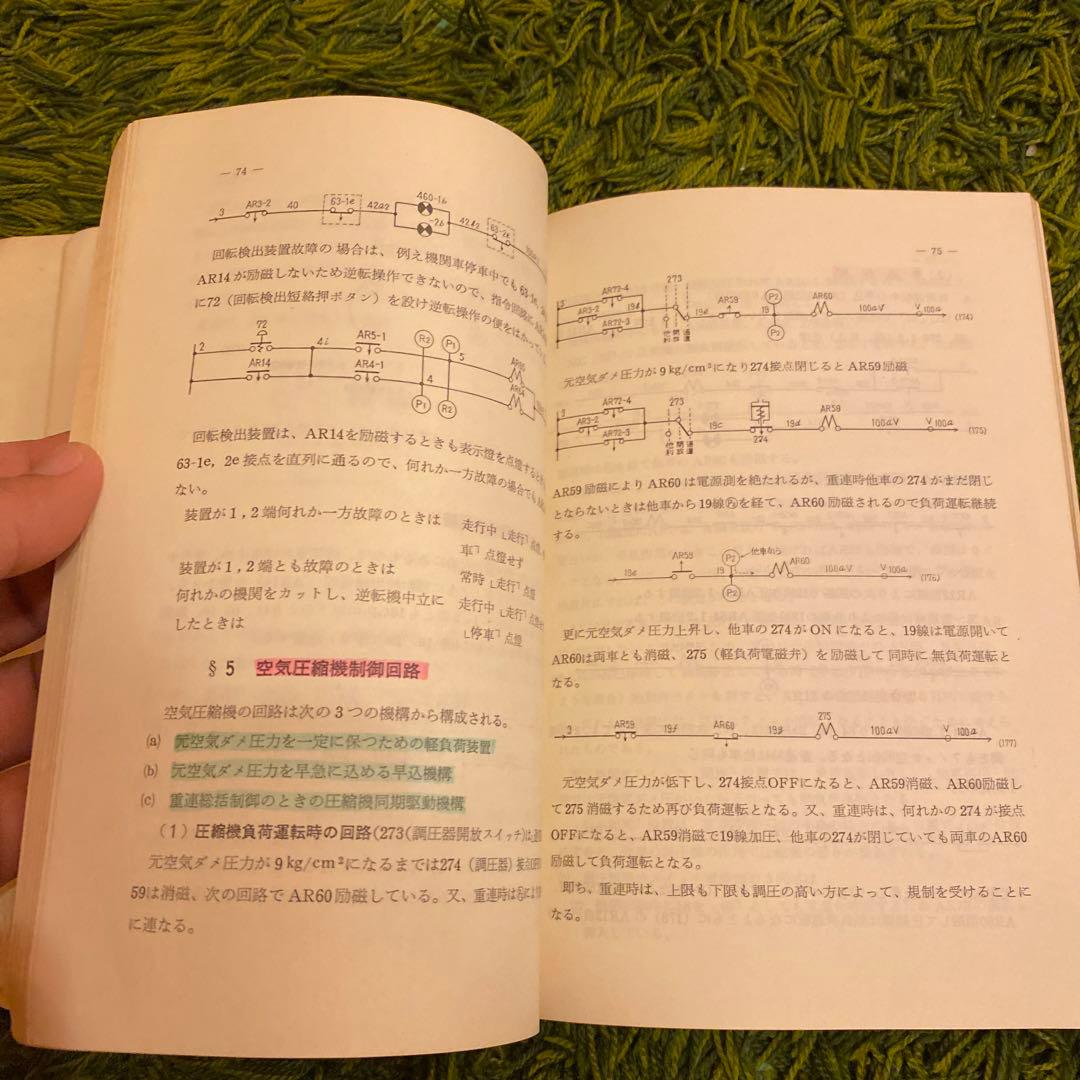 — 74 —
3 AR3-2 40 63-1e 42a2 460-16 -26 42b2 63-2e
回転検出装置故障の場合は、例え機関車停車中でも63-1e,
AR14が励磁しないため逆転操作できないので、指令回路に
に72（回転検出短絡押ボタン）を設け逆転操作の便をはかって
2 72 4i AR5-1 R2 P1 5
AR14 AR4-1 4 AR64
P1 R2
回転検出装置は、AR14を励磁するときも表示燈を点燈すると
63-1e, 2e接点を直列に通るので、何れか一方故障の場合でも
ない。
装置が1,2端何れか一方故障のときは 走行中「走行」点燈
車」点燈せず
装置が1,2端とも故障のときは 常時「走行」点燈
何れかの機関をカットし、逆転機中立に 走行中「走行」点燈
したときは 「停車」点燈
§5 空気圧縮機制御回路
空気圧縮機の回路は次の3つの機構から構成される。
(a) 元空気ダメ圧力を一定に保つための軽負荷装置
(b) 元空気ダメ圧力を早急に込める早込機構
(c) 重連総括制御のときの圧縮機同期駆動機構
(1) 圧縮機負荷運転時の回路(273(調圧器開放スイッチ)は
元空気ダメ圧力が9kg/cm²になるまでは274（調圧器）接点
59は消磁、次の回路でAR60励磁している。又、重連時は
に連なる。
— 75 —
3 AR72-4 AR3-2 AR72-3 19b 273 他 開放 19c AR59 19 P2 P2 AR60 100aV V 100a (174)
元空気ダメ圧力が9kg/cm²になり274接点閉じるとAR59励磁
3 AR72-4 AR3-2 AR72-3 273 他 開放 19c 274 19d AR59 100aV V 100a (175)
AR59励磁によりAR60は電源測を絶たれるが、重連時他車の274がまだ閉じ
とならないときは他車から19線P2を経て、AR60励磁されるので負荷運転継続
する。
19c AR59 19 P2 P2 他車から AR60 100aV V 100a (176)
更に元空気ダメ圧力上昇し、他車の274がONになると、19線は電源開いて
AR60は両車とも消磁、275（軽負荷電磁弁）を励磁して同時に無負荷運転と
なる。
3 AR59 19f AR60 19g 275 100aV V 100a (177)
元空気ダメ圧力が低下し、274接点OFFになると、AR59消磁、AR60励磁し
て275消磁するため再び負荷運転となる。又、重連時は、何れかの274が接点
OFFになると、AR59消磁で19線加圧、他車の274が閉じていても両車のAR60
励磁して負荷運転となる。
即ち、重連時は、上限も下限も調圧の高い方によって、規制を受けることに
なる。